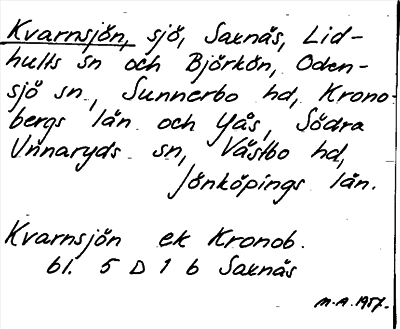 Kvarnsjön, sjö, Saxnäs, Lid-
hults sn och Björkön, Oden-
sjö sn., Sunnerbo hd, Krono-
bergs län och Yås, Södra
Unnaryds sn, Västbo hd,
Jönköpings län.
Kvarnsjön ek Kronob.
bl. 5 D 1 b Saxnäs
M.A. 1957.